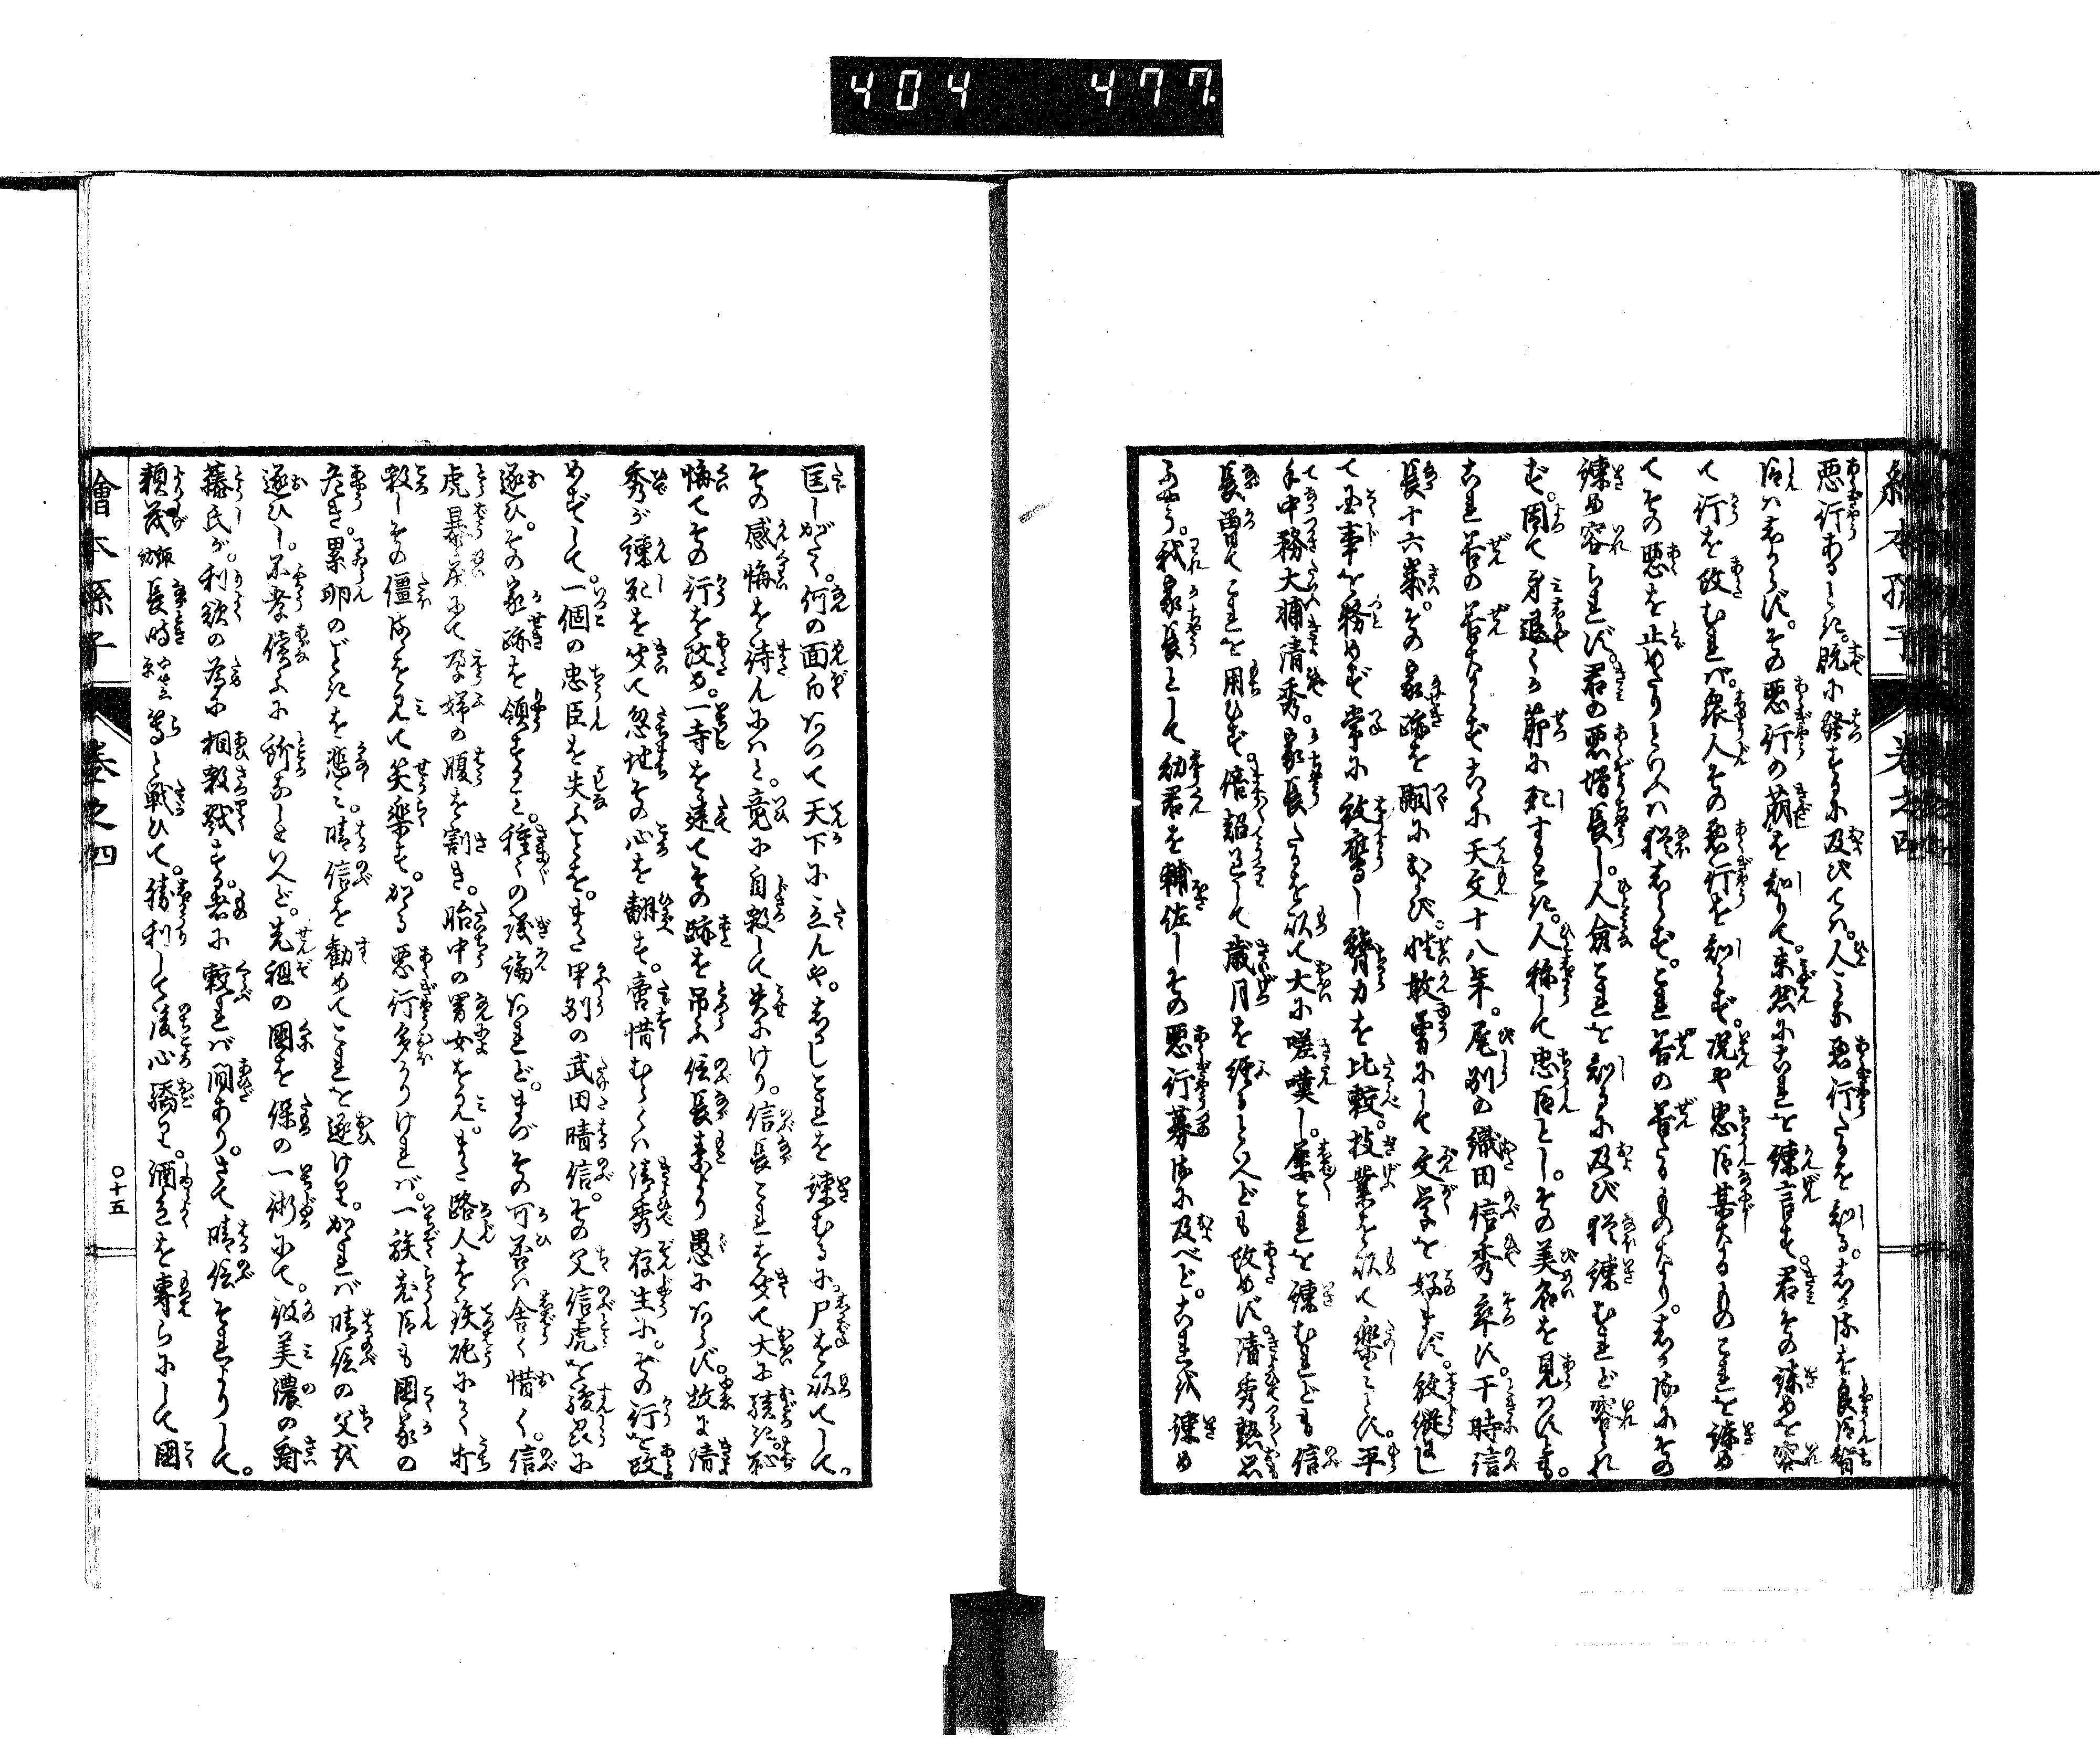 404 477.
繪本孫子 巻之四
悪行あるとき。既に發するに及びては。人みな悪行たるを知る。しかるを良臣智
臣はしからず。その悪行の萠を知りて。未然にこれを諫言す。君その諫めを容
て行を改むれば。衆人その悪行を知らず。况や忠臣某なるものこれを諫め
てその悪を止めたりといへは猶しらず。これ善の善たるものなり。しかるにその
諫め容られず。君の悪増長し。人僉これを知るに及び猶諫むれど容られ
ず。因て身退くか節に死するとき。人称して忠臣とし。その美名を見はすとも。
これ善の善ならずこゝに天文十八年。尾州の織田信秀卒す。于時信
長十六歳。その家跡を嗣におよび。性敢勇にして文学を好まず。放縦に
て国事を務めず常に放鷹し膂力を比較。技業を以て楽とす。平
手中務大輔清秀。家長たるを以て大に嗟嘆し。屡これを諫むれども信
長曽てこれを用ひず。倍諂して歳月を經るといへども改めず。清秀熟思
ふやう。我家長として幼君を輔佐しその悪行募るに及べど。これ我諫め
匡しがたく。何の面目ありて天下に立んや。しかしこれを諫むるに尸を以てして。
その感悔を待んにはと。竟に自殺して失にけり。信長これを聞て大に驚き恥
悔てその行を改め。一寺を建てその跡を吊ふ信長素より愚にあらず。故に清
秀が諫死を聞て忽地その心を翻す。啻惜むらくは清秀存生に。その行を改
めずして。一個の忠臣を失ふことを。また甲州の武田晴信。その父信虎を駿州に
逐ひ。その家跡を領すること。種々の議論あれど。まづその可否は舎く惜く。信
虎暴戻にて孕婦の腹を割き。胎中の男女を見。また路人を鉄炮にて打
殺しその僵るを見て笑楽す。かゝる悪行多かりければ。一族老臣も國家の
危き。累卵のごときを悲み。晴信を勧めてこれを逐けり。かゝれば晴信の父を
逐ひし。不孝僥ふに所なしといへど。先祖の國を保の一術にて。彼美濃の齋
藤氏が。利欲の為に相殺戮する。者に較れば間あり。さて晴信それよりして。
頼茂 諏訪 長時 小笠原 等と戦ひて。勝利して後心驕り。酒色を專らにして國
繪本孫子 巻之四 〇十五